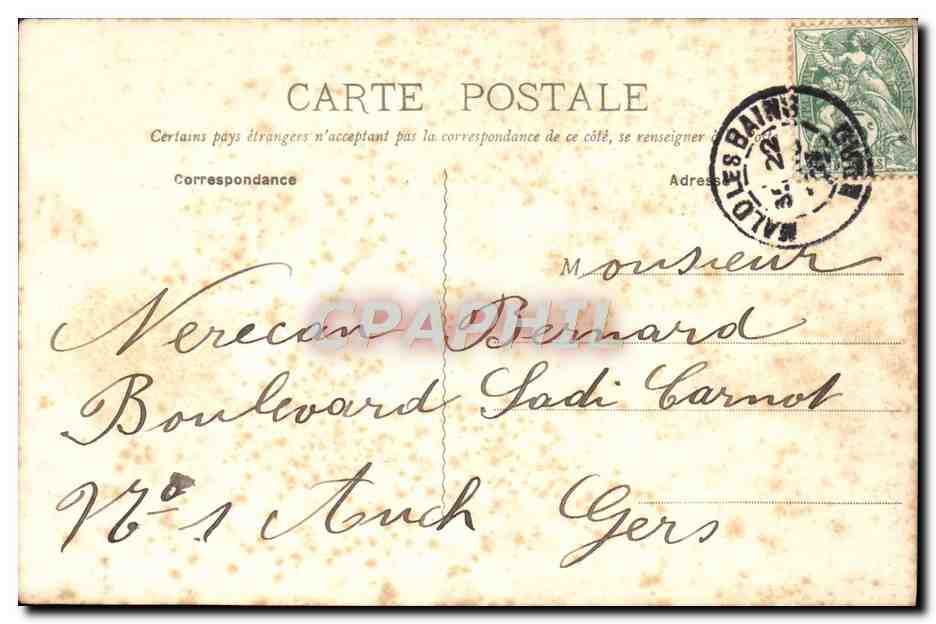 CARTE POSTALE
Certains pays étrangers n'acceptant pas la correspondance de ce côté, se renseigner
Correspondance
Adresse
MALO LES BAINS
22
Monsieur
Nerecan Bernard
Boulevard Sadi Carnot
No 1 Auch Gers
CPAPHIL